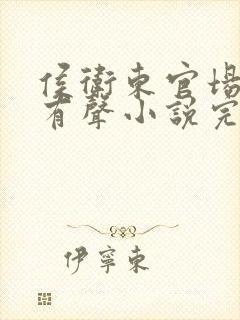 侯衛東官場
有聲小說完
伊寧東